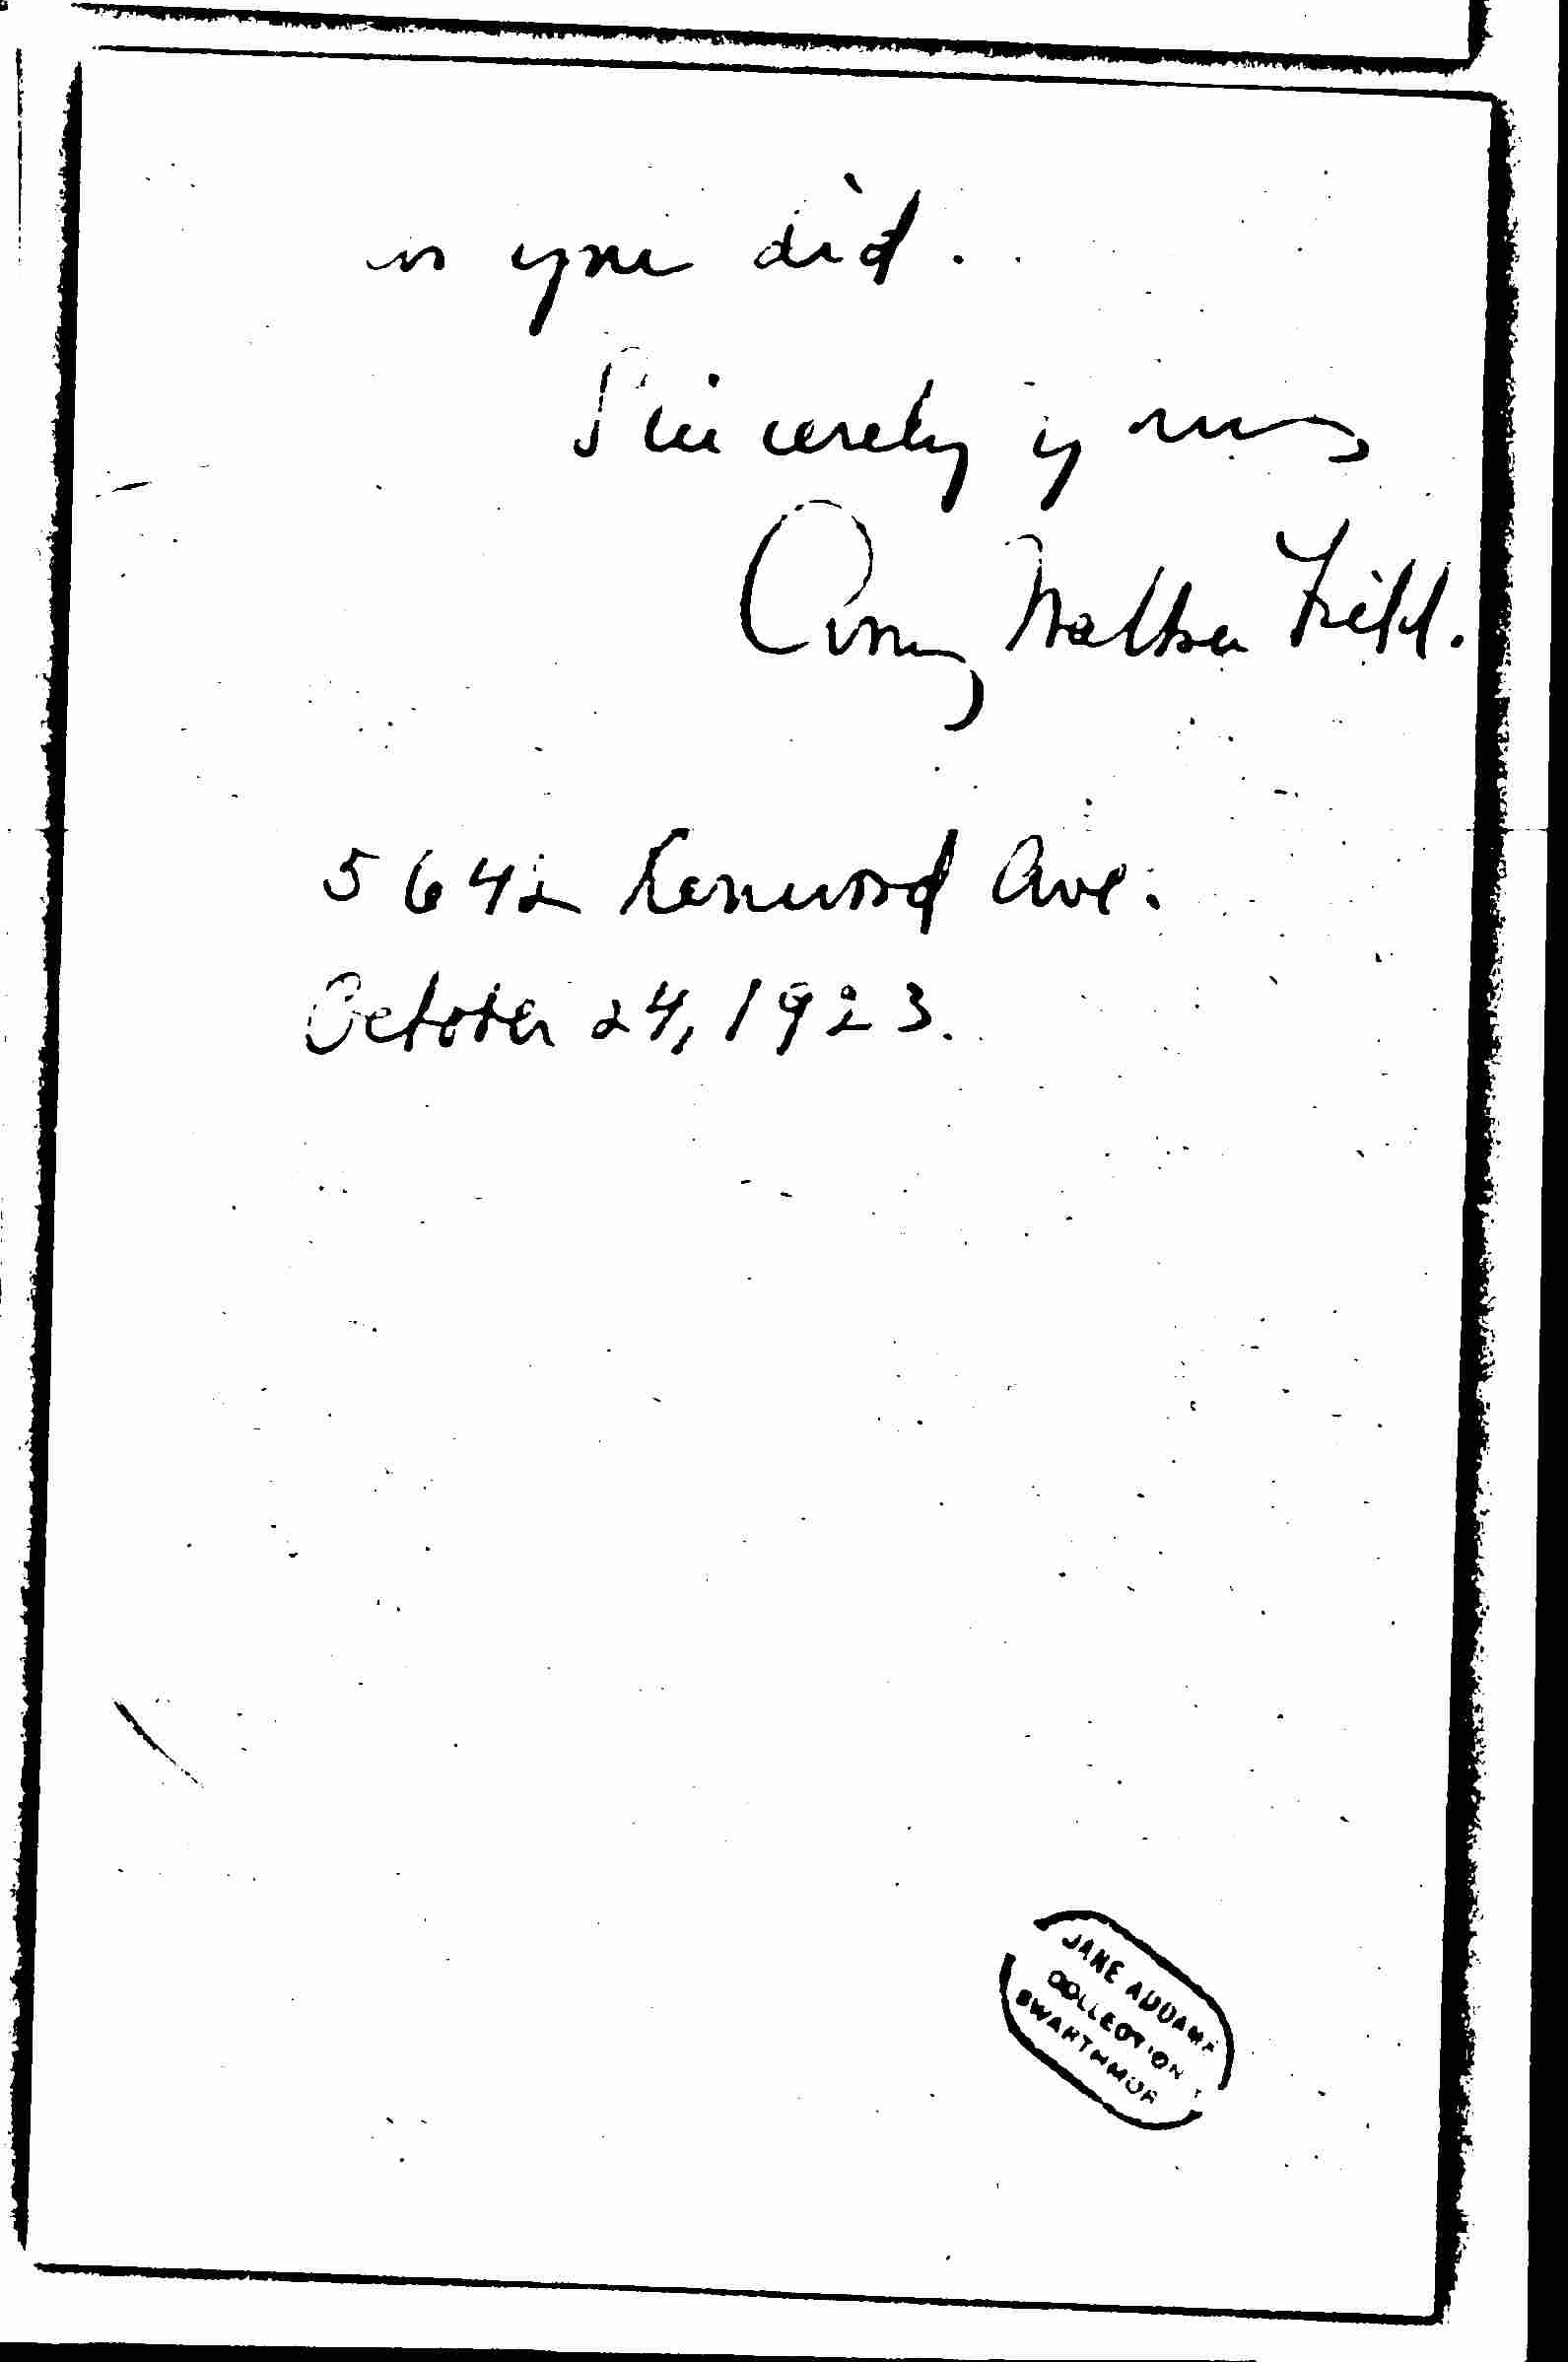 as you did.
Sincerely yours
Amy Walker Field.
5642 Kenwood Ave.
October 24, 1923.
JANE ADDAMS
COLLECTION
SWARTHMOR